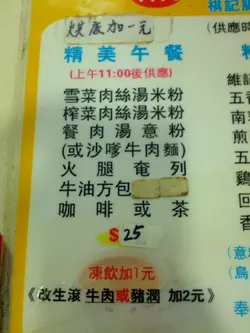 烘底加一元
精美午餐
(上午11:00後供應)
雪菜肉絲湯米粉
榨菜肉絲湯米粉
餐肉湯意粉
(或沙嗲牛肉麵)
火腿奄列
牛油方包
咖啡或茶
$25
凍飲加1元
《改生滾牛肉或豬潤 加2元》
棋記
(供應時
維記
五香
南
鮮
五香
雞
回
(意
(鳥
奉